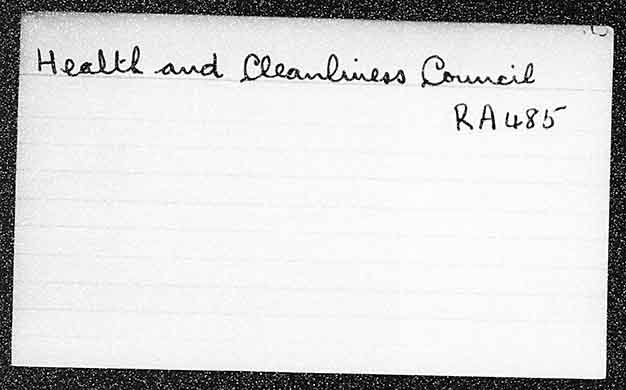 Health and Cleanliness Council
RA485